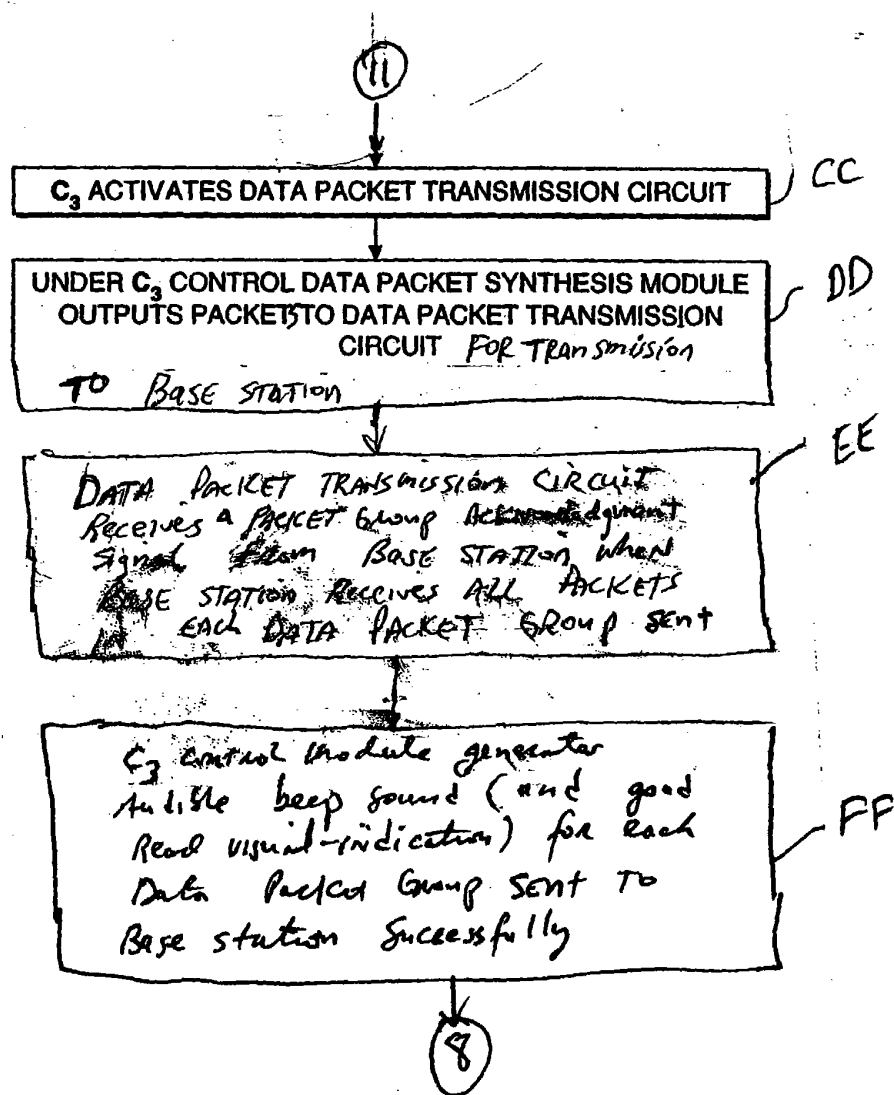 11
C₃ ACTIVATES DATA PACKET TRANSMISSION CIRCUIT
CC
UNDER C₃ CONTROL DATA PACKET SYNTHESIS MODULE
OUTPUTS PACKETS TO DATA PACKET TRANSMISSION
CIRCUIT FOR TRANSmission
TO BASE STATION
DD
DATA PACKET TRANSMISSION CIRCUIT
Receives a PACKET Group Acknowledgment
Signal From BASE STATION when
BASE STATION Receives ALL PACKETS
EACH DATA PACKET GROUP SENT
EE
C₃ control module generator
Audible beep sound (and good
Read visual-indication) for each
Data Packet Group SENT TO
Base station Successfully
FF
8